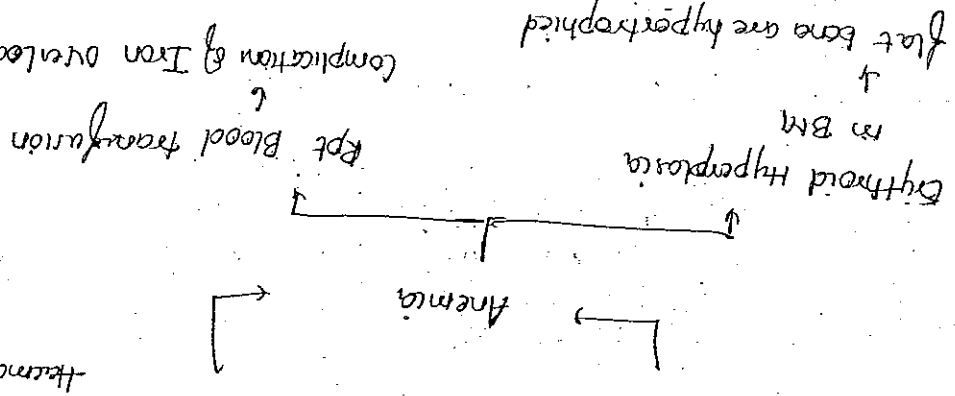 Anemia
Erythroid Hyperplasia
in BM
flat bone are hypertrophied
Rpt Blood transfusion
Complication of Iron overloa